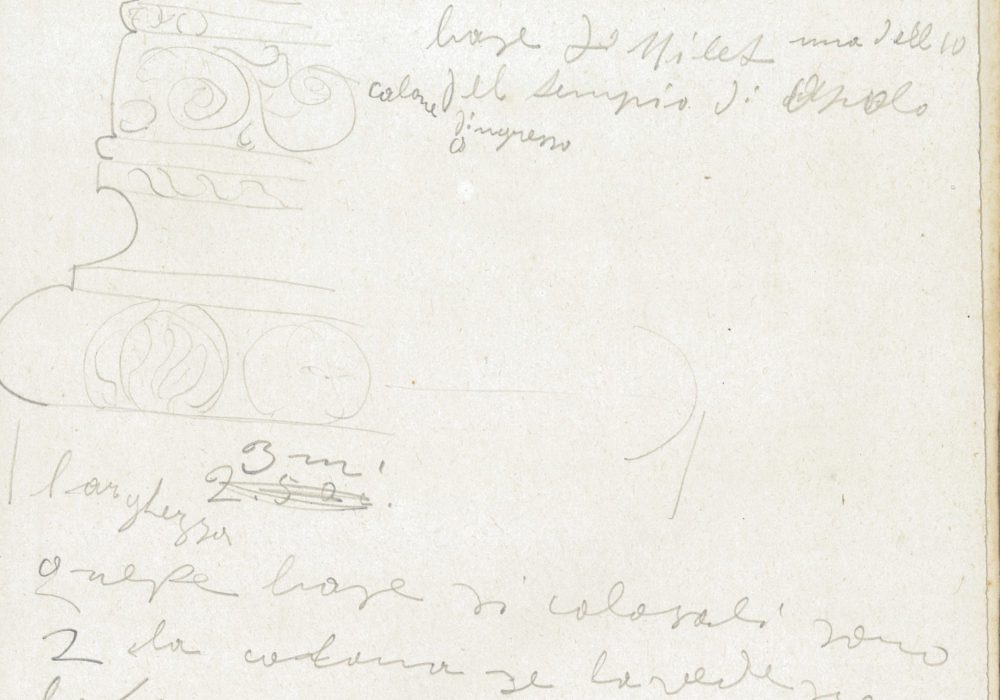 base di Milet una dell 10
colone dell tempio di Apolo
d'ingresso
3 m.
2.50 c.
larghezza
queste base si colosali sono
2 la cotona se la vede